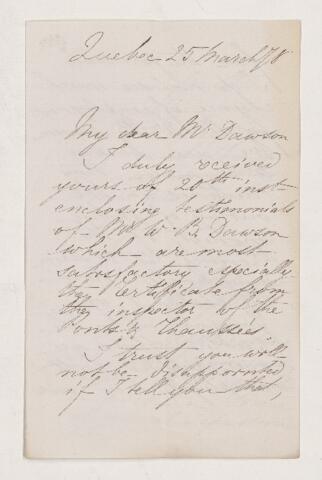 Quebec 25 March/78
My dear Mr Dawson
I duly received
yours of 20th inst
enclosing testimonials
of Mr W B Dawson
which are most
satisfactory especially
the Certificate from
the inspector of the
Ponts & Chaussées
I trust you will
not be disappointed
if I tell you that,